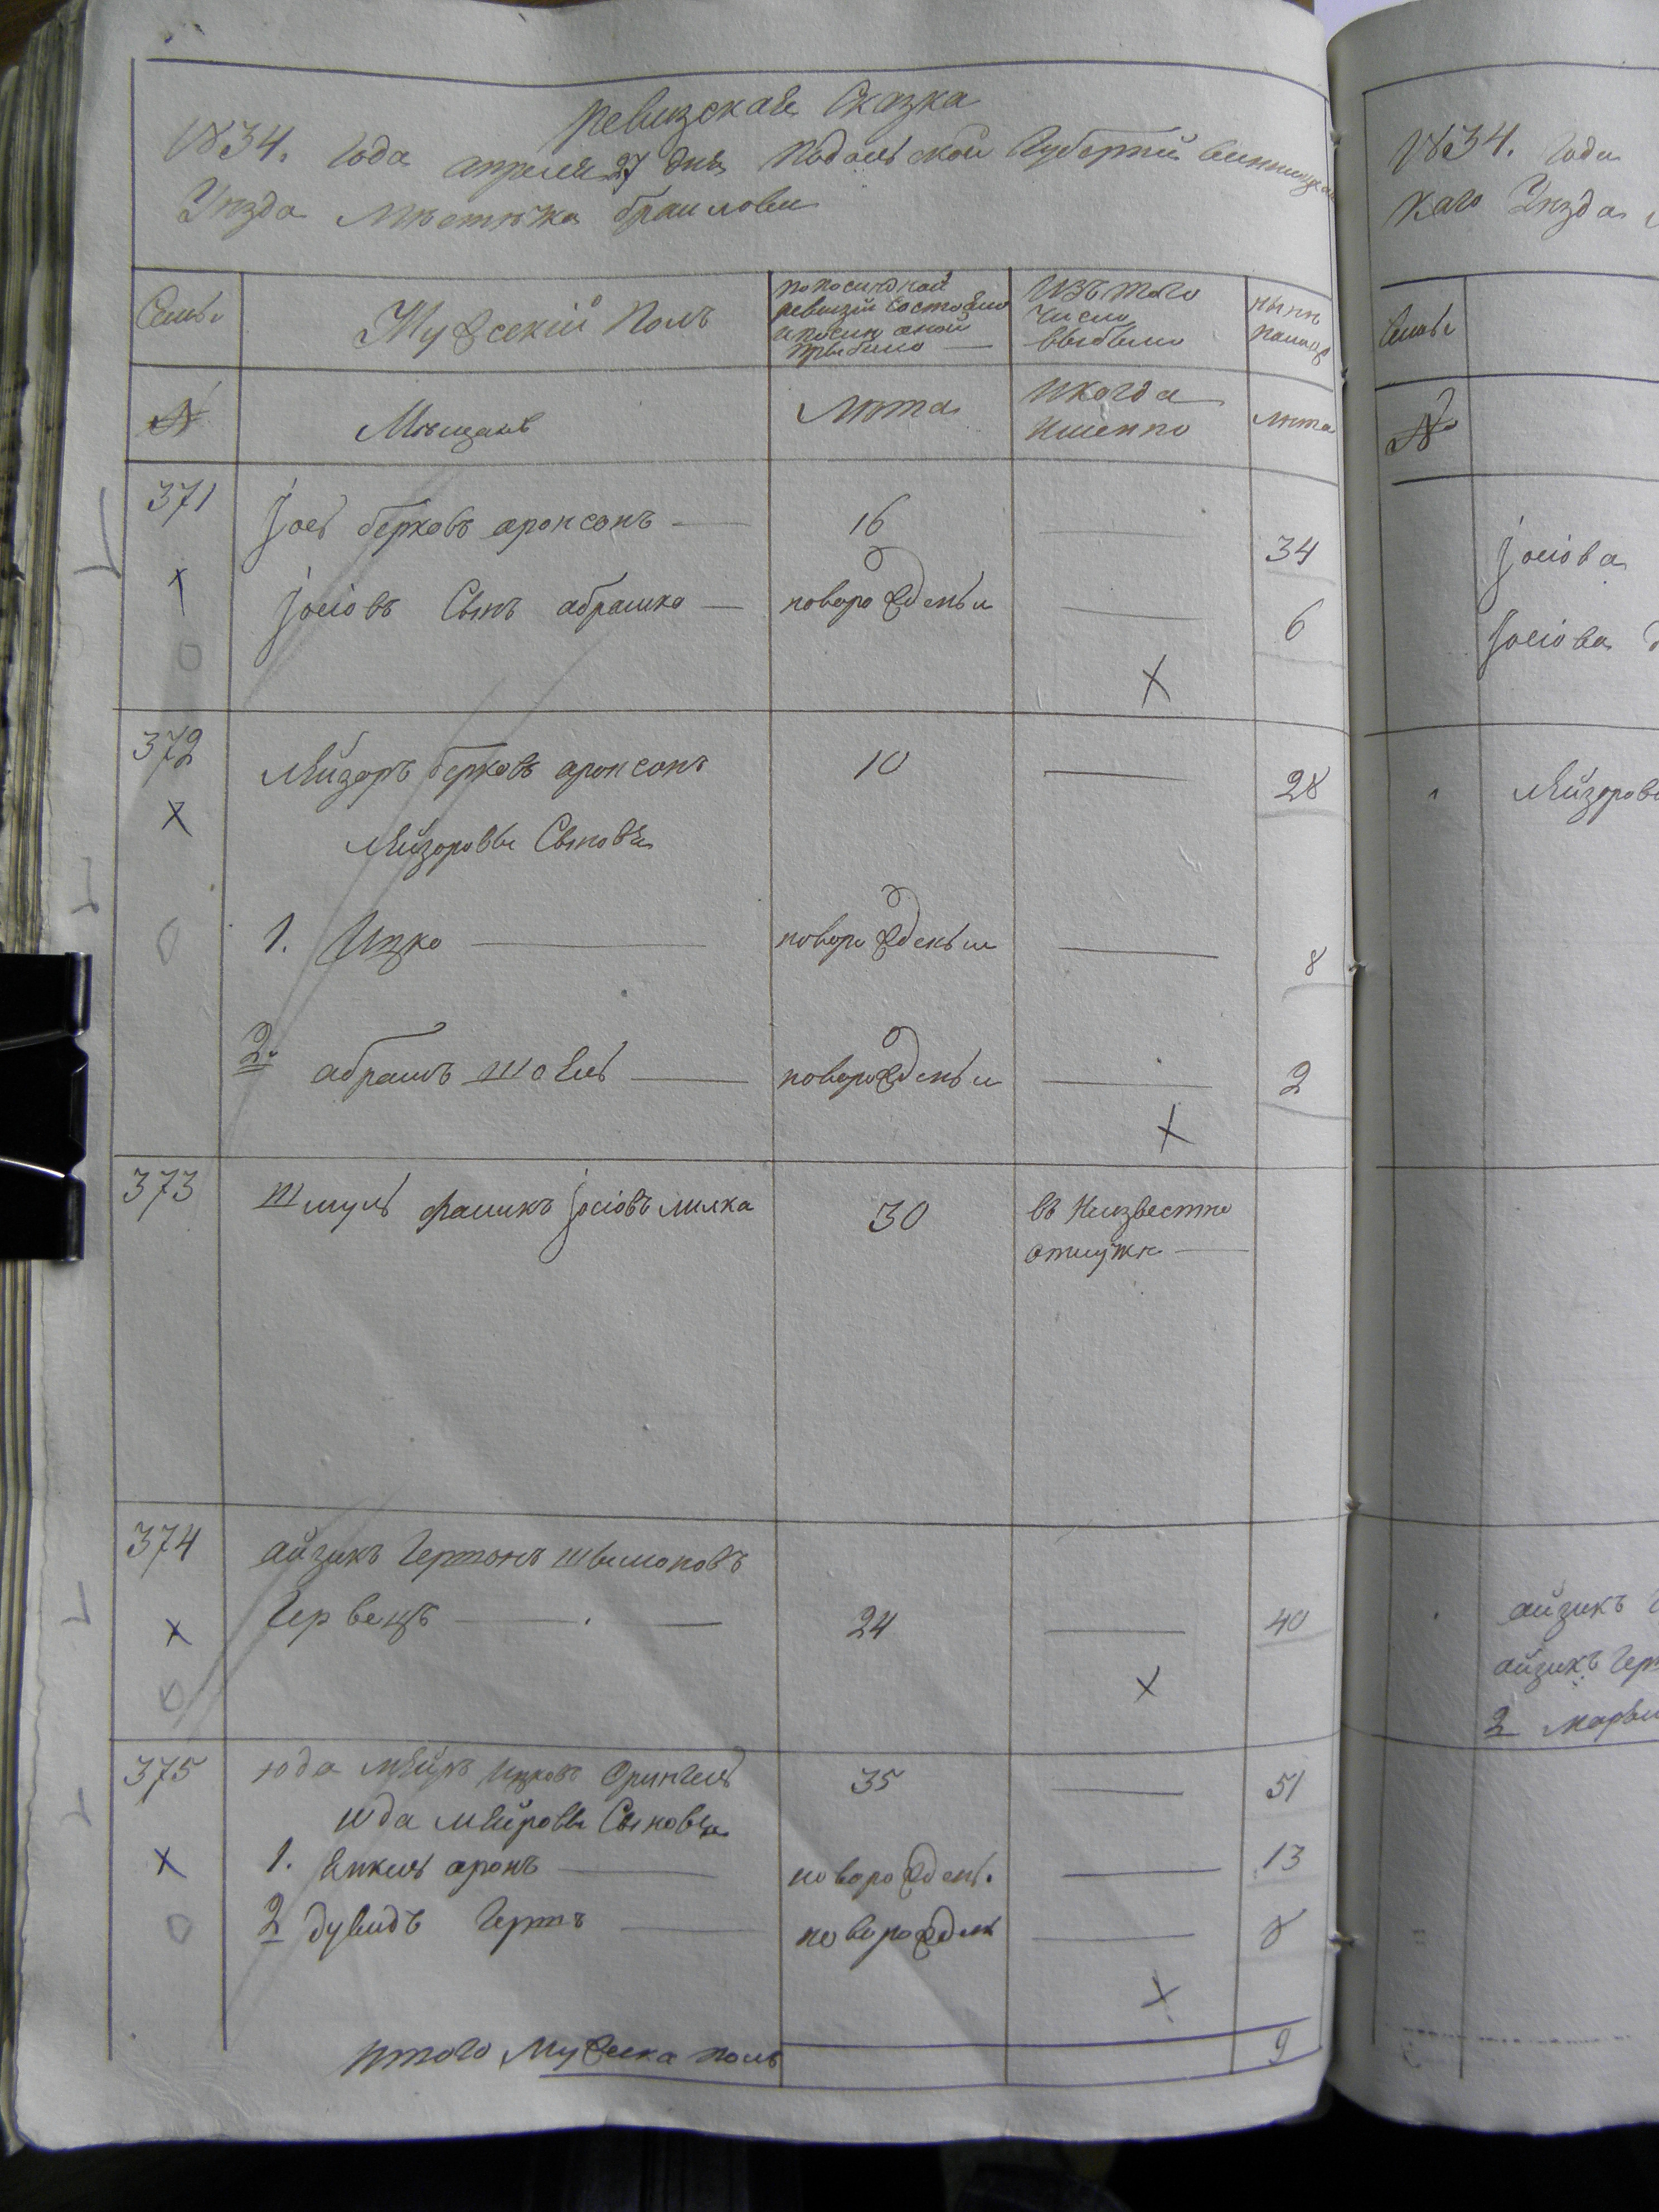 Ревизская Сказка
1834. года апреля 27 дня Подольской Губернии Винницкаго
Уезда Местечка браилова
Семьи
Мужеский Полъ
по последной
ревизии состояло
и после оной
прибыло
Изъ того
числа
выбыло
ныне
налицо
№
Мещане
Лета
И когда
именно
Лета
371
Јось берковъ аронсонъ
16
34
Јосіовъ Сынъ абрашко
новорожденъи
6
372
Лейзоръ берковъ аронсонъ
10
28
Лейзоровы Сыновья
1. Ицко
новорожденъи
8
2. абрамъ шоель
новорожденъи
2
373
шмуль файикъ јосіовъ милка
30
въ Неизвестно
отлужке
374
айзикъ Гершонъ шылмоновъ
Гервецъ
24
40
375
юда мейръ ицковъ Орингель
35
51
юда мейровы Сыновья
1. Янкель аронъ
новорожденъ.
13
2 дувидъ Гершъ
новорожден
8
итого Мужеска полъ
9
1834. года
каго Уезда
Семьи
№
Јосіова
Јосіова
Лейзорова
айзикъ
айзикъ Гер
2 марьи